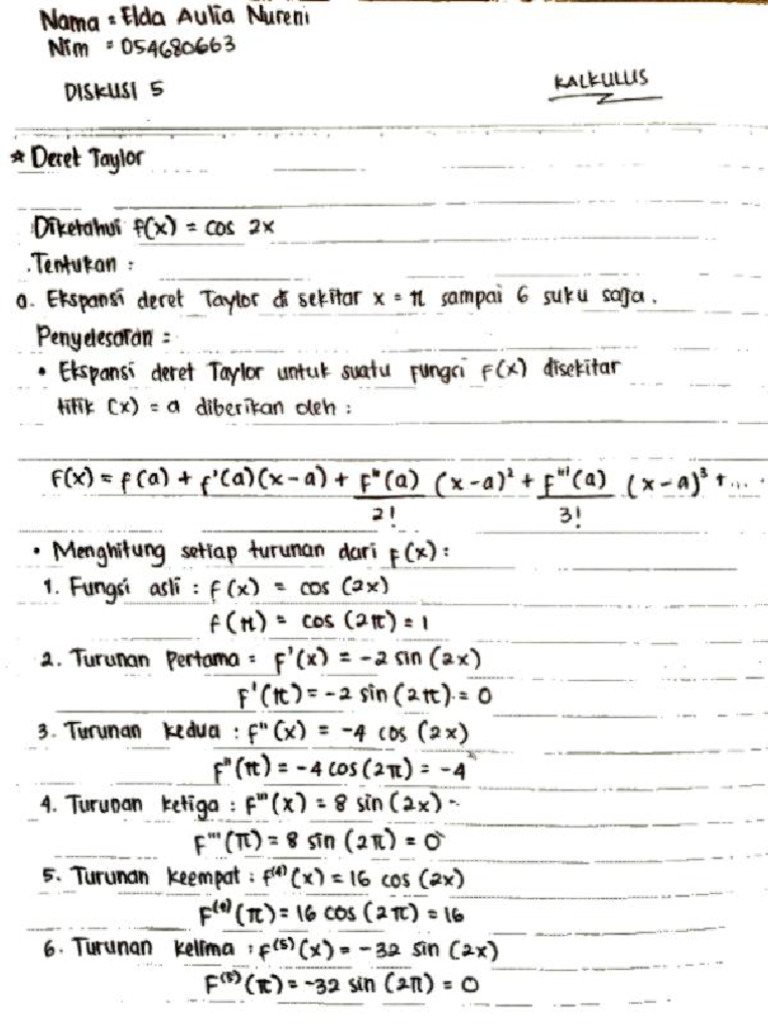 Nama : Elda Aulia Nureni
Nim : 054680663
DISKUSI 5
KALKULUS
* Deret Taylor
Diketahui f(x) = cos 2x
Tentukan :
a. Ekspansi deret Taylor di sekitar x = π sampai 6 suku saja.
Penyelesaian :
• Ekspansi deret Taylor untuk suatu fungsi f(x) disekitar
titik (x) = a diberikan oleh :
F(x) = f(a) + f'(a)(x-a) + F"(a)/2! (x-a)² + F"'(a)/3! (x-a)³ + ....
• Menghitung setiap turunan dari f(x) :
1. Fungsi asli : f(x) = cos (2x)
f(π) = cos (2π) = 1
2. Turunan Pertama : f'(x) = -2 sin (2x)
F'(π) = -2 sin (2π) = 0
3. Turunan kedua : f"(x) = -4 cos (2x)
F"(π) = -4 cos (2π) = -4
4. Turunan ketiga : F"'(x) = 8 sin (2x)
F"'(π) = 8 sin (2π) = 0
5. Turunan keempat : f⁽⁴⁾(x) = 16 cos (2x)
F⁽⁴⁾(π) = 16 cos (2π) = 16
6. Turunan kelima : f⁽⁵⁾(x) = -32 sin (2x)
F⁽⁵⁾(π) = -32 sin (2π) = 0